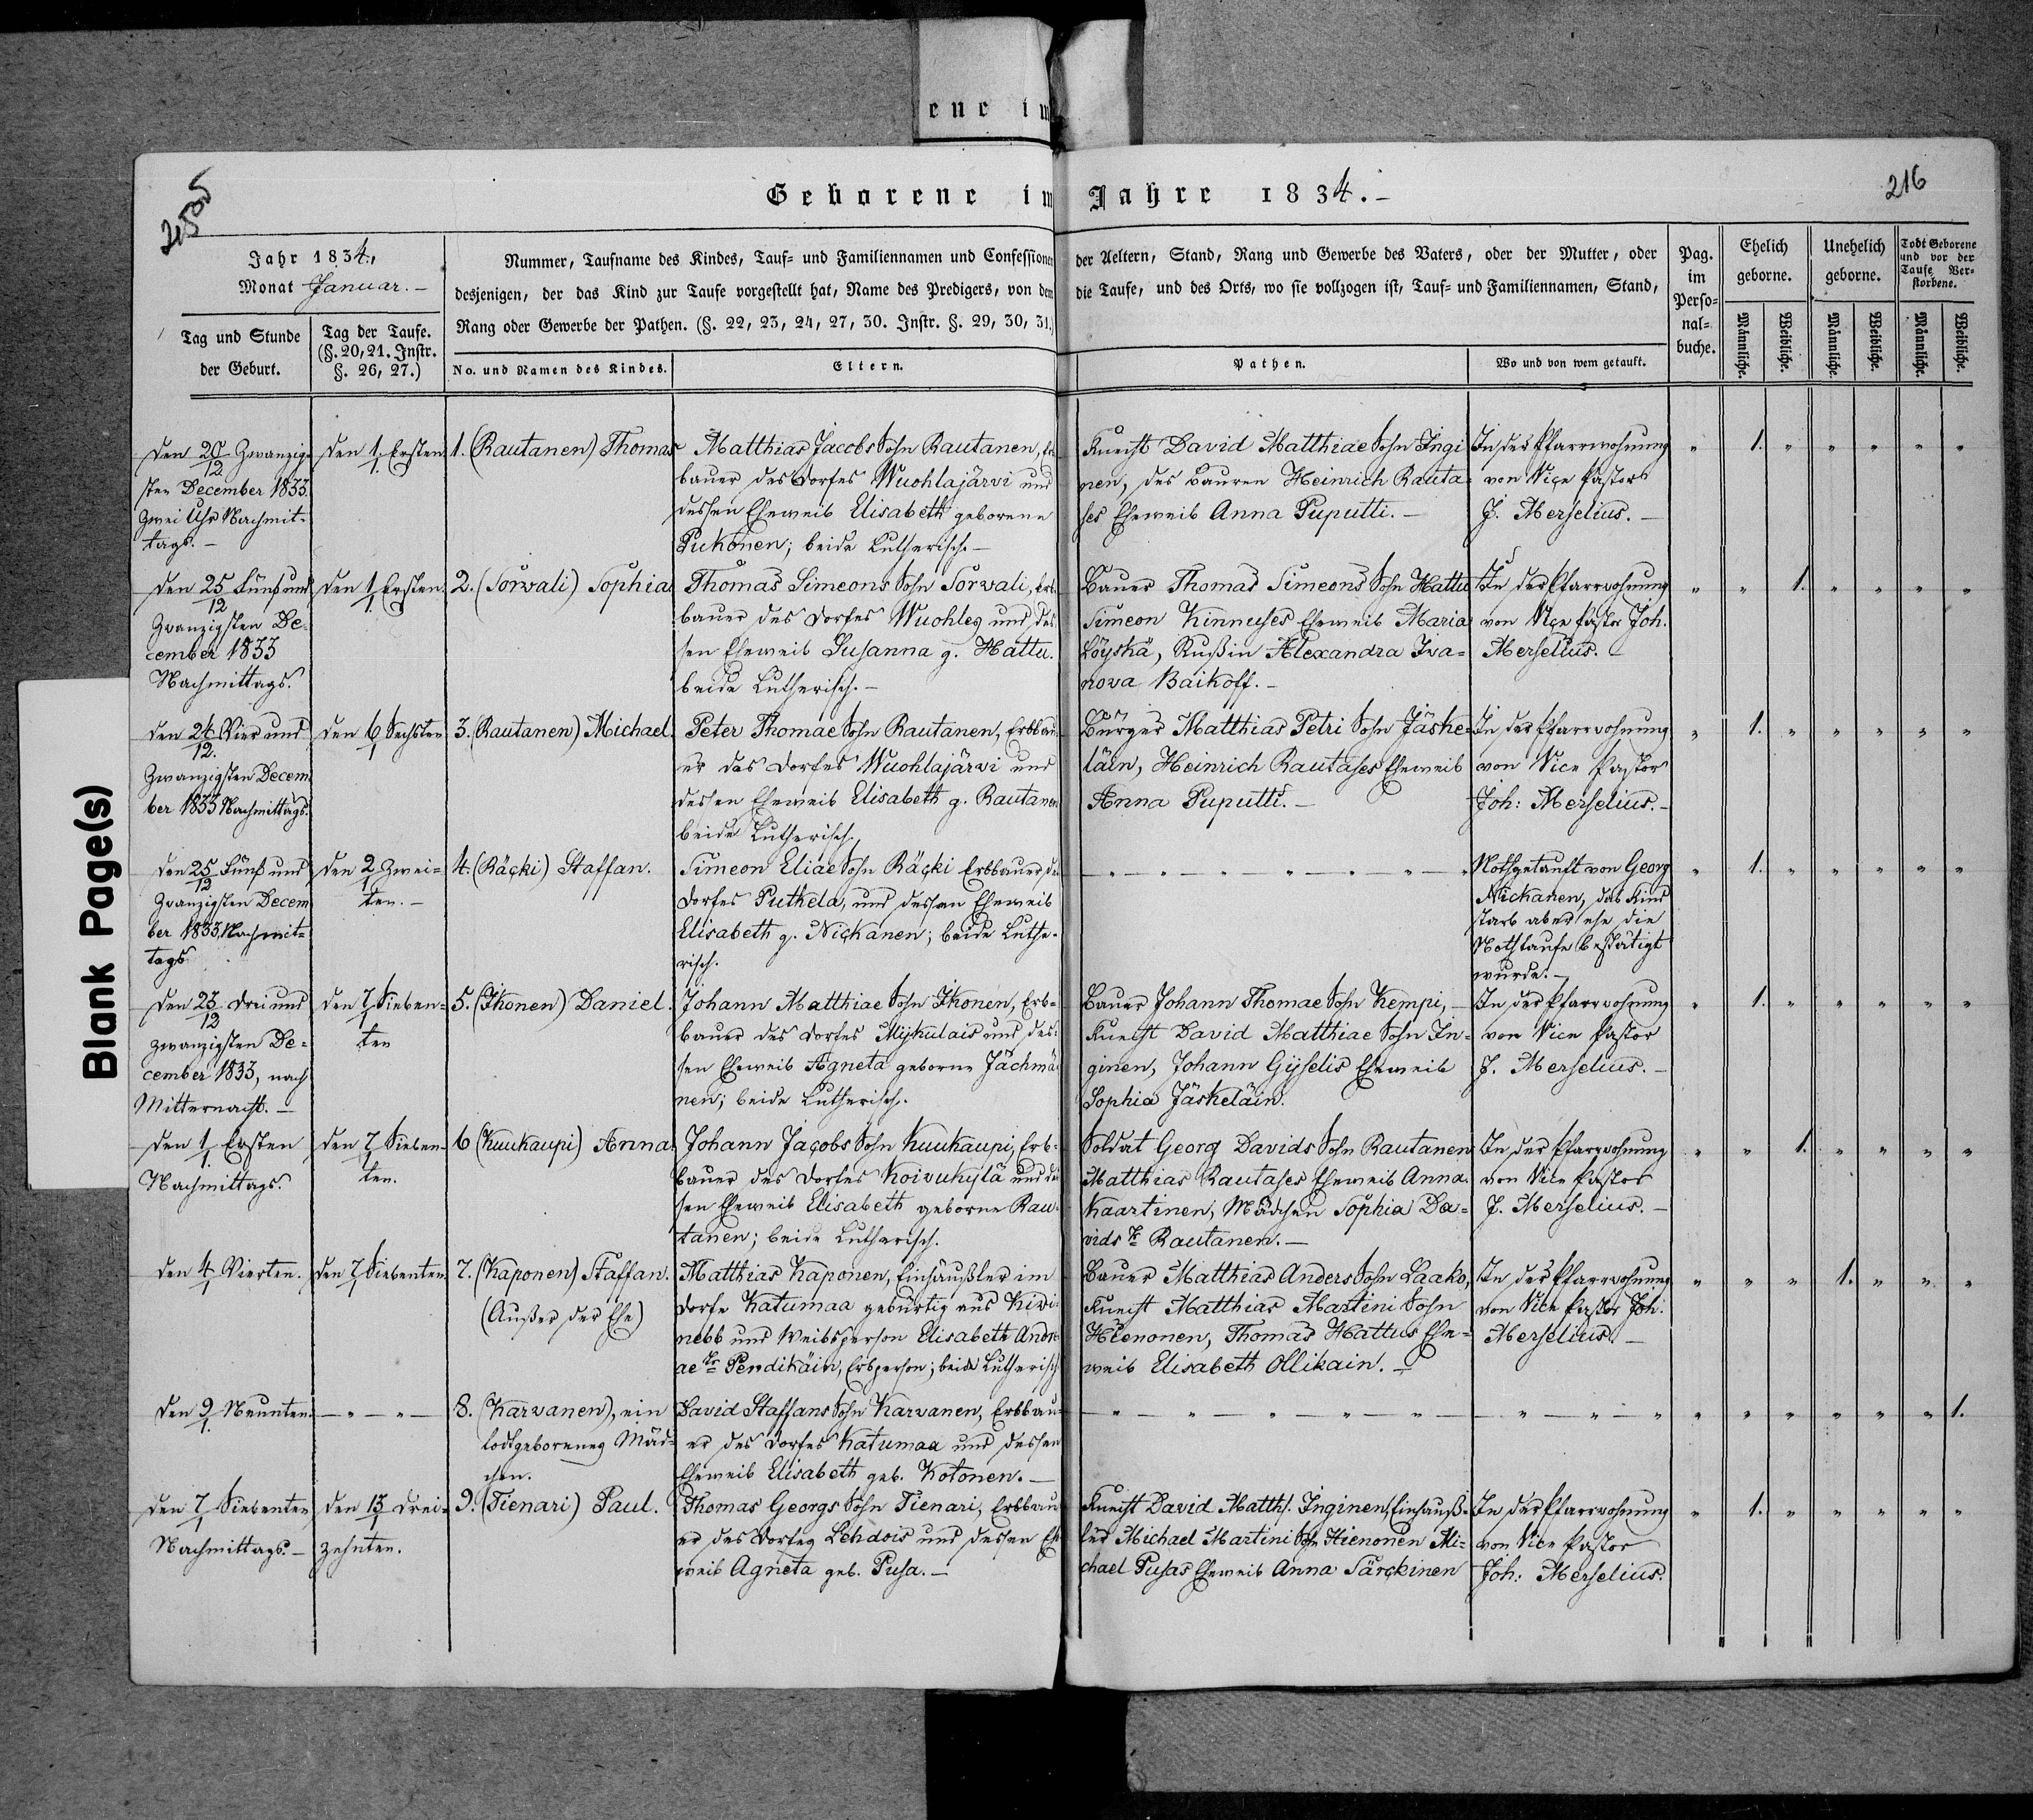 ene im
Geborene im Jahre 1834.-
216
Jahr 1834.,
Monat Januar.-
Tag und Stunde
der Geburt.
Tag der Taufe.
(§. 20, 21. Instr.
§. 26, 27.)
Nummer, Taufname des Kindes, Tauf- und Familiennamen und Confessionen der Aeltern, Stand, Rang und Gewerbe des Vaters, oder der Mutter, oder
desjenigen, der das Kind zur Taufe vorgestellt hat, Name des Predigers, von dem die Taufe, und des Orts, wo sie vollzogen ist, Tauf- und Familiennamen, Stand,
Rang oder Gewerbe der Pathen. (§. 22, 23, 24, 27, 30. Instr. §. 29, 30, 31.)
No. und Namen des Kindes.
Eltern.
Pathen.
Wo und von wem getauft.
Pag.
im
Perso=
nal=
buche.
Ehelich
geborne.
Unehelich
geborne.
Todt Geborene
und vor der
Taufe Ver-
storbene.
Männliche.
Weibliche.
Männliche.
Weibliche.
Männliche.
Weibliche.
Den 20/12 Zwanzig-
sten December 1833.
Zwei Uhr Nachmit-
tags.-
den 1/1 Ersten
1. (Rautanen) Thomas
Matthias Jacobs Sohn Rautanen, Erb-
bauer des Dorfes Wuohlajärvi und
dessen Eheweib Elisabeth geborene
Pukonen; beide Lutherisch.-
Knecht David Matthiae Sohn Ingi
nen, des Bauren Heinrich Rauta
ses Eheweib Anna Puputti.-
In der Pfarrwohnung
von Vice Pastor
J. Merselius.-
" 1. " " " " "
Den 25/12 Fünf und
Zwanzigsten De-
cember 1833
Nachmittags.
den 1/1 Ersten.
2. (Sorwali) Sophia
Thomas Simeons Sohn Sorvali, Erb-
bauer des Dorfes Wuohles und des
sen Eheweib Susanna g. Hattu.
beide Lutherisch.-
Bauer Thomas Simeons Sohn Hattu
Simeon Kinnuses Eheweib Maria
Löyskä, Rußin Alexandra Iwa=
nova Baikoff.-
In der Pfarrwohnung
von Vice Pastor Joh.
Merselius.-
" " 1. " " " "
den 24/12. Vier und
Zwanzigsten Decem
ber 1833 Nachmittags.
den 6/1 Sechsten
3. (Rautanen) Michael.
Peter Thomae Sohn Rautanen, Erbbau
er des Dorfes Wuohlajärvi und
dessen Eheweib Elisabeth g. Rautanen
beide Lutherisch.
Bürger Matthias Petri Sohn Jäske-
läin, Heinrich Rautases Eheweib
Anna Puputti.-
In der Pfarrwohnung
von Vice Pastor
Joh: Merselius.-
" 1. " " " " "
den 25/12 Fünf und
Zwanzigsten Decem
ber 1833, Nachmit=
tags
den 2/1 Zwei=
ten.-
4. (Räcki) Staffan.
Simeon Eliae Sohn Räcki Erbbauer des
Dorfes Puthela, und dessen Eheweib
Elisabeth g. Nickanen; beide Luthe-
risch.
Nothgetauft von Georg
Nickanen, das Kind
starb aber ehe die
Nothtaufe bestätigt
wurde.-
" 1. " " " " "
Den 23/12 Drei und
zwanzigsten De-
cember 1833, nach
Mitternacht.-
den 7/1 Sieben=
ten
5. (Ikonen) Daniel.
Johann Matthiae Sohn Ikonen, Erb=
bauer des Dorfes Mijkulais und des=
sen Eheweib Agneta geborne Jächmä
nen; beide Lutherisch.
Bauer Johann Thomae Sohn Kempi,-
Knecht David Matthiae Sohn In-
ginen, Johann Gijselis Eheweib
Sophia Jäskeläin.
In der Pfarrwohnung
von Vice Pastor
J. Merselius.-
" 1. " " " " "
Den 1/1 Ersten
Nachmittags.
den 7/1 Sieben-
ten.
6 (Kuukaupi) Anna.
Johann Jacobs Sohn Kuukaupi, Erb=
bauer des Dorfes Koivukylä und des
sen Eheweib Elisabeth geborne Rau
tanen; beide Lutherisch.
Soldat Georg Davids Sohn Rautanen
Matthias Rautases Eheweib Anna.
Kaartinen, Mädchen Sophia Da=
vids Tr Rautanen.-
In der Pfarrwohnung
von Vice Pastor
J. Merselius.-
" " 1. " " " "
den 4/1 Vierten.
den 7/1 Siebenten.
7. (Kaponen) Staffan.
(Außer der Ehe)
Matthias Kaponen, Einhäußler im
Dorfe Katumaa gebürtig aus Kivi
nebb und Weibsperson Elisabeth Andre
ae Tr Pendikäin, Erbperson; beide Lutherisch
Bauer Matthias Anders Sohn Laako,
Knecht Matthias Martini Sohn
Hienonen, Thomas Hattus Ehe=
weib Elisabeth Ollikain.-
In der Pfarrwohnung
von Vice Pastor Joh.
Merselius.-
" " " 1. " " "
den 9/1. Neunten.
- " - " -
8. (Karvanen), ein
todtgeborenes Mäd=
chen.
David Staffans Sohn Karvanen, Erbbau=
er des Dorfes Katumaa und dessen
Eheweib Elisabeth geb. Kotonen.-
" " " " " " 1.
Den 7/1 Siebenten
Nachmittags.-
den 13/1 Drei=
zehnten.
9. (Tienari) Paul.
Thomas Georgs Sohn Tienari, Erbbau
er des Dorfes Lehdois und dessen Ehe
weib Agneta geb. Pusa.-
Knecht David Matth: Inginen, Einhäuß-
ler Michael Martini Sohn Hienonen Mi=
chael Pusas Eheweib Anna Särckinen
In der Pfarrwohnung
von Vice Pastor
Joh: Merselius.
" 1. " " " " "
Blank Page(s)